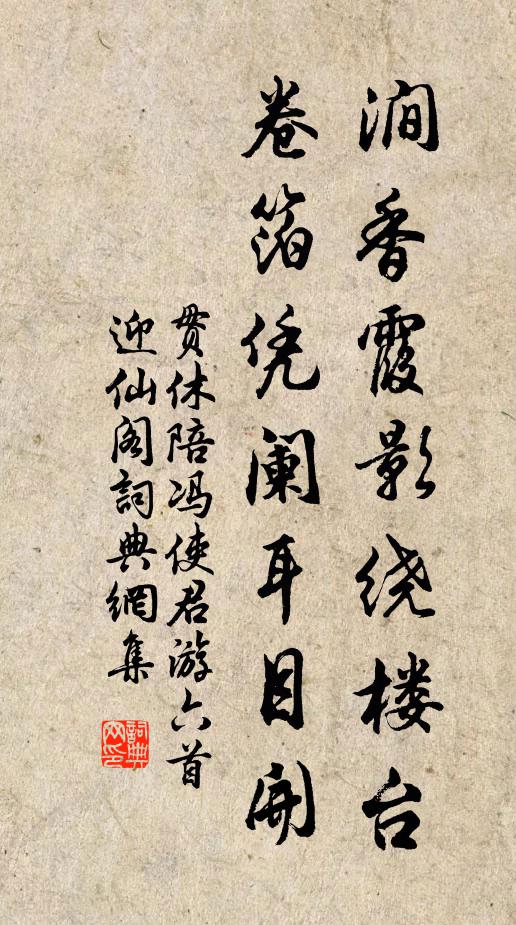 涧香霞影绕楼台
卷箔凭阑耳目开
贯休陪冯使君游六首
迎仙阁詞典網集
詞典
网印